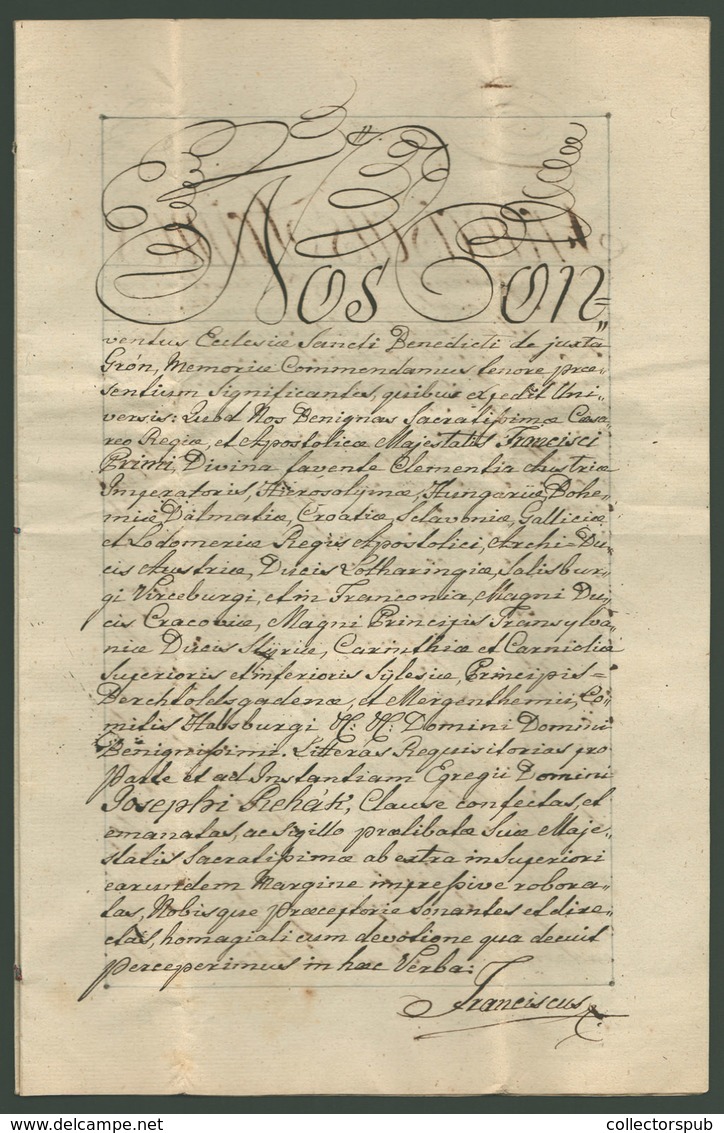 Nos Con=
ventus Ecclesiæ Sancti Benedicti de juxta
Grón, Memoriæ Commendamus tenore præ=
sentium significantes, quibus expedit Uni=
versis: Quod Nos Benignas Sacratissimæ Cæsa,
reo Regiæ, et Apostolicæ Majestatis Francisci
Primi, Divina favente Clementia Austriæ
Imperatoris, Hierosolymæ, Hungariæ, Bohe,
miæ, Dalmatiæ, Croatiæ, Sclavoniæ, Galliciæ
et Lodomeriæ Regis Apostolici, Archi=Du,
cis Austriæ, Ducis Lotharingiæ, Salisbur,
gi Virceburgi, et in Franconia, Magni Du,
cis Cracoviæ, Magni Principis Transylva
niæ Ducis Styriæ, Carinthiæ et Carnioliæ
Superioris et inferioris Sylesiæ, Principis=
Berchtoldsgadenæ, et Mergenthemii, Co,
mitis Habsburgi &: &: Domini Domini
Benignissimi. Litteras Requisitorias pro
Parte et ad Instantiam Egregii Domini
Josephi Rehák, Clause confectas, et
emanatas, ac Sigillo prælibatæ Suæ Maje,
statis Sacratissimæ ab extra in Superiori
earundem Margine impressive robora=
tas, Nobisque Præceptorie sonantes et dire,
ctas, homagiali cum devotione qua decuit
perceperimus in hæc Verba:
Franciscus
collectorspub